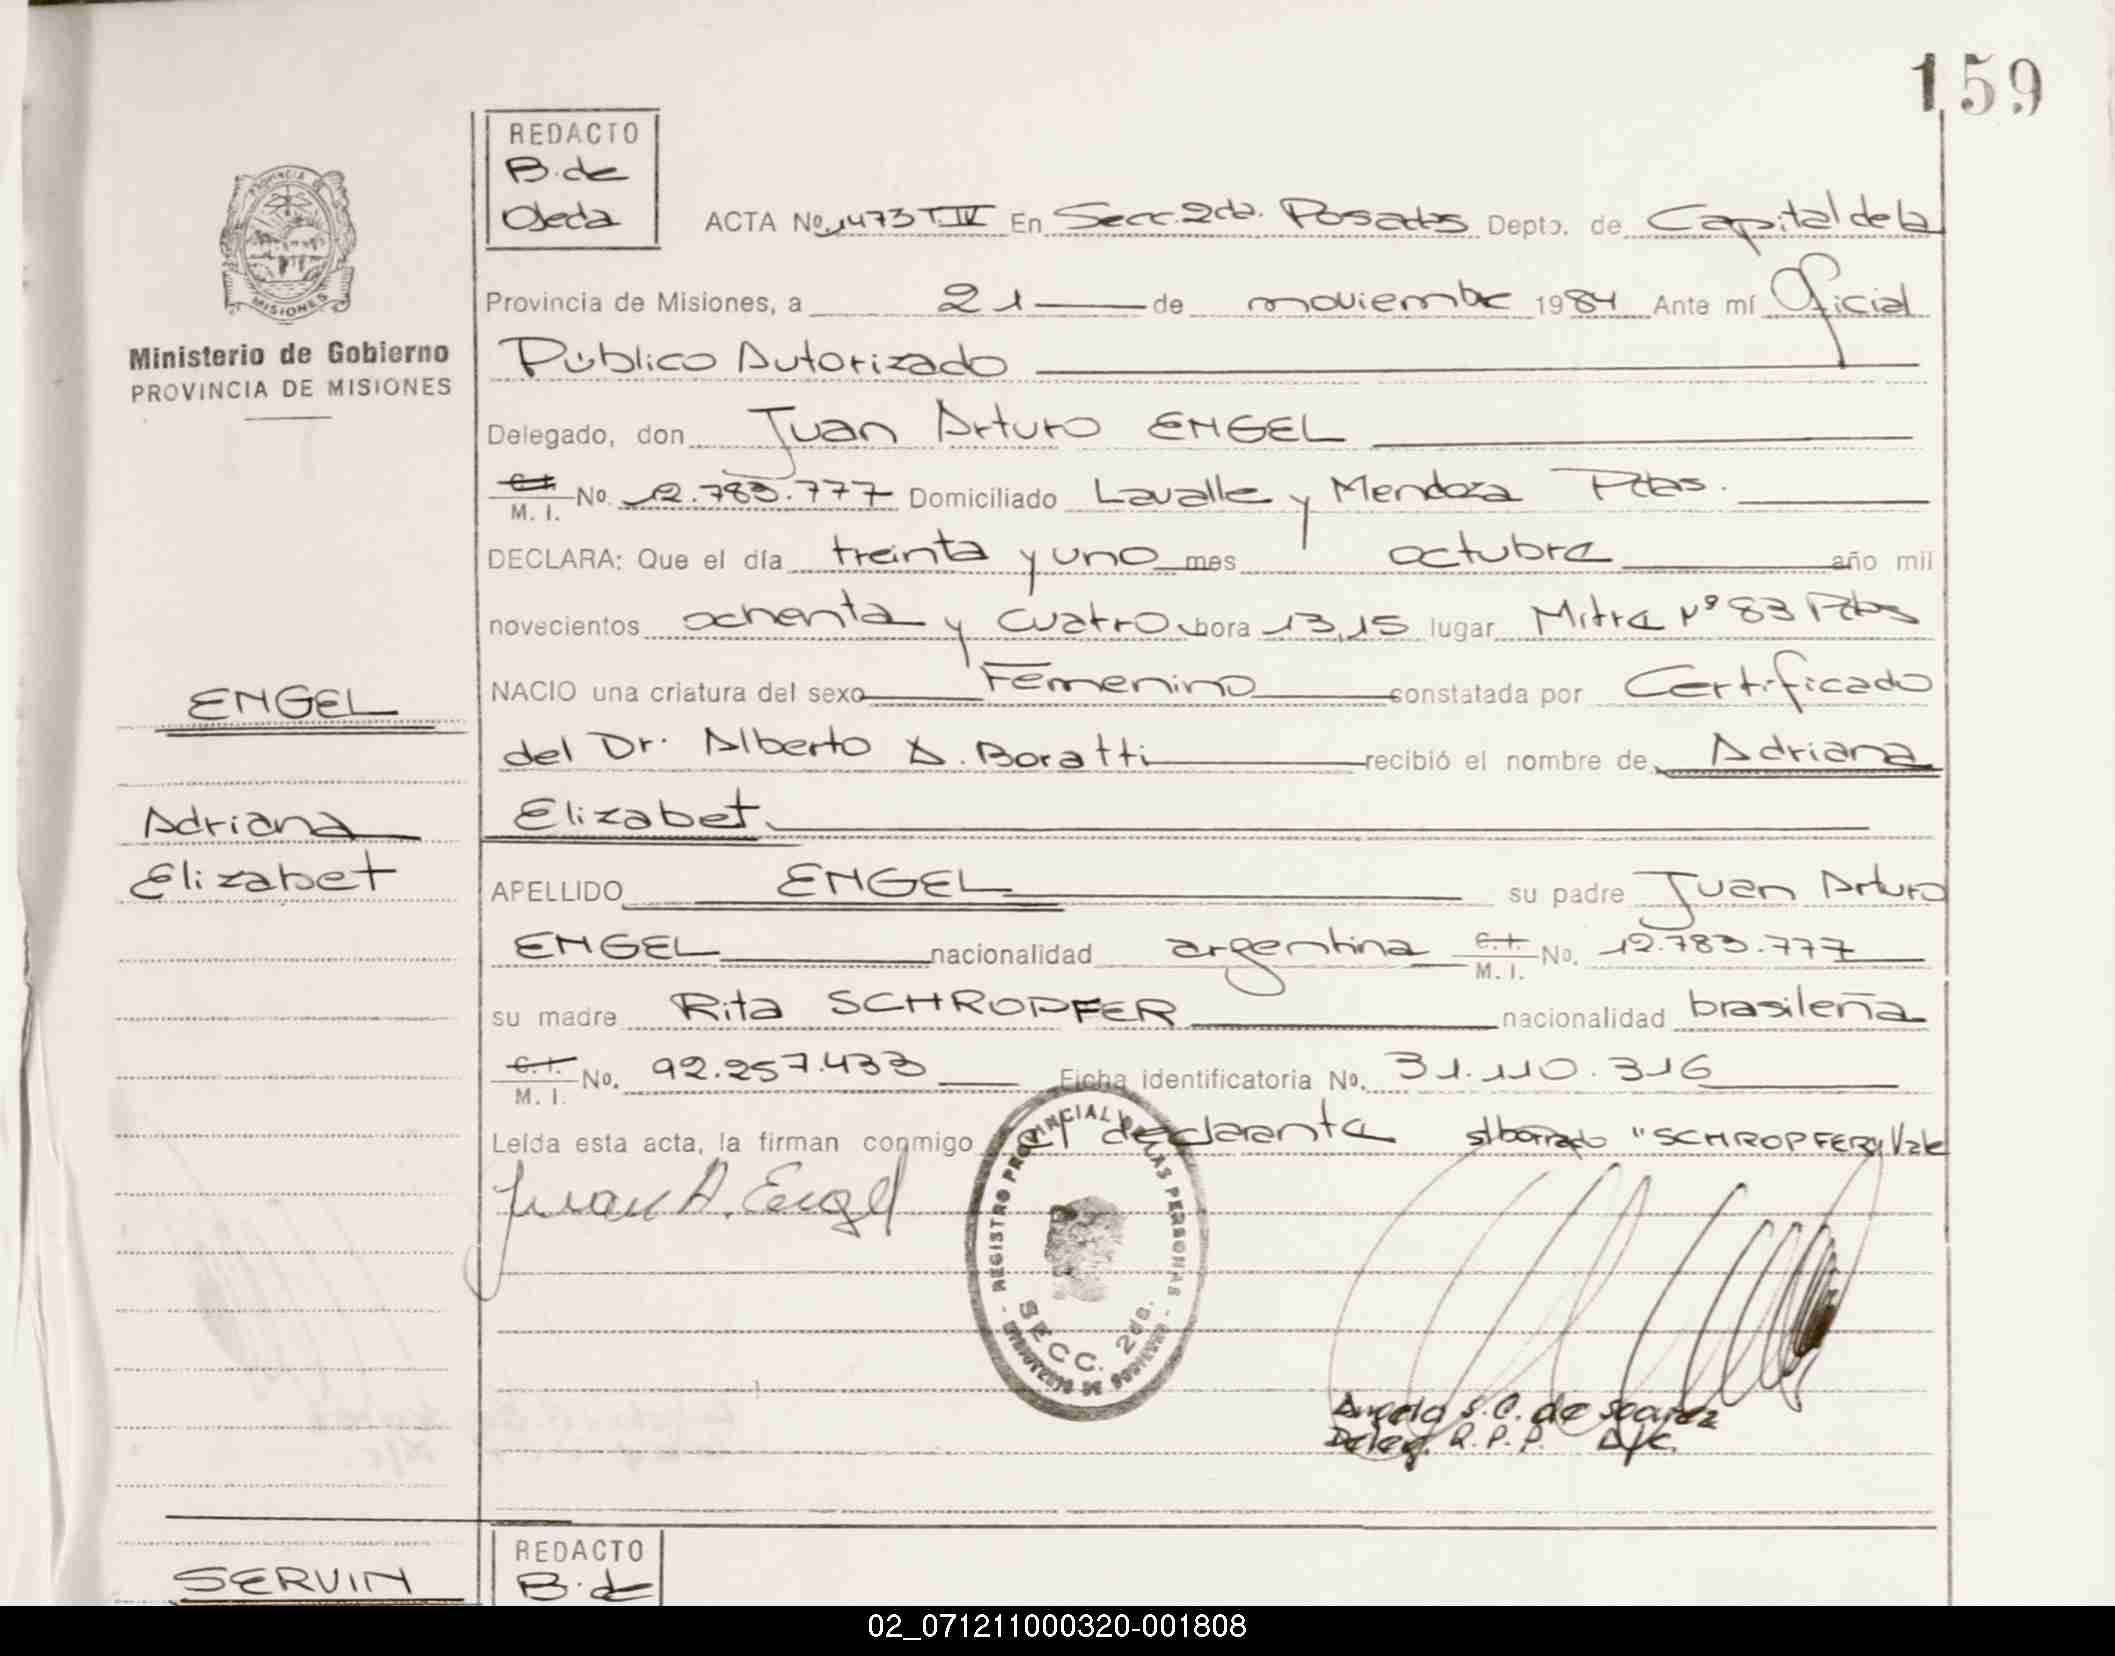 159
REDACTO
B. de
Ojeda
PROVINCIA DE
MISIONES
Ministerio de Gobierno
PROVINCIA DE MISIONES
ACTA No. 1473 T. IV En Secc. 2da. Posadas Depto. de Capital de la
Provincia de Misiones, a 21 de noviembre 1984 Ante mí Oficial
Público Autorizado
Delegado, don Juan Arturo ENGEL
C. I. / M. I. No. 12.783.777 Domiciliado Lavalle y Mendoza Pdas.
DECLARA: Que el día treinta y uno mes octubre año mil
novecientos ochenta y cuatro hora 13,15 lugar Mitre Nº 83 Pdas
NACIO una criatura del sexo Femenino constatada por Certificado
del Dr. Alberto A. Boratti recibió el nombre de Adriana
Elizabet.
APELLIDO ENGEL su padre Juan Arturo
ENGEL nacionalidad argentina C. I. / M. I. No. 12.783.777
su madre Rita SCHROPFER nacionalidad brasileña
C. I. / M. I. No. 92.257.433 Ficha identificatoria No. 31.110.316
Leída esta acta, la firman conmigo el declarante s/borrado "SCHROPFER" Vale
ENGEL
Adriana
Elizabet
Juan A. Engel
REGISTRO PROVINCIAL DE LAS PERSONAS
SECC. 2da.
MINISTERIO DE GOBIERNO
Angela S. C. de Soarez
Deleg. R. P. P. A/C.
SERVIN
REDACTO
B. de
02_071211000320-001808